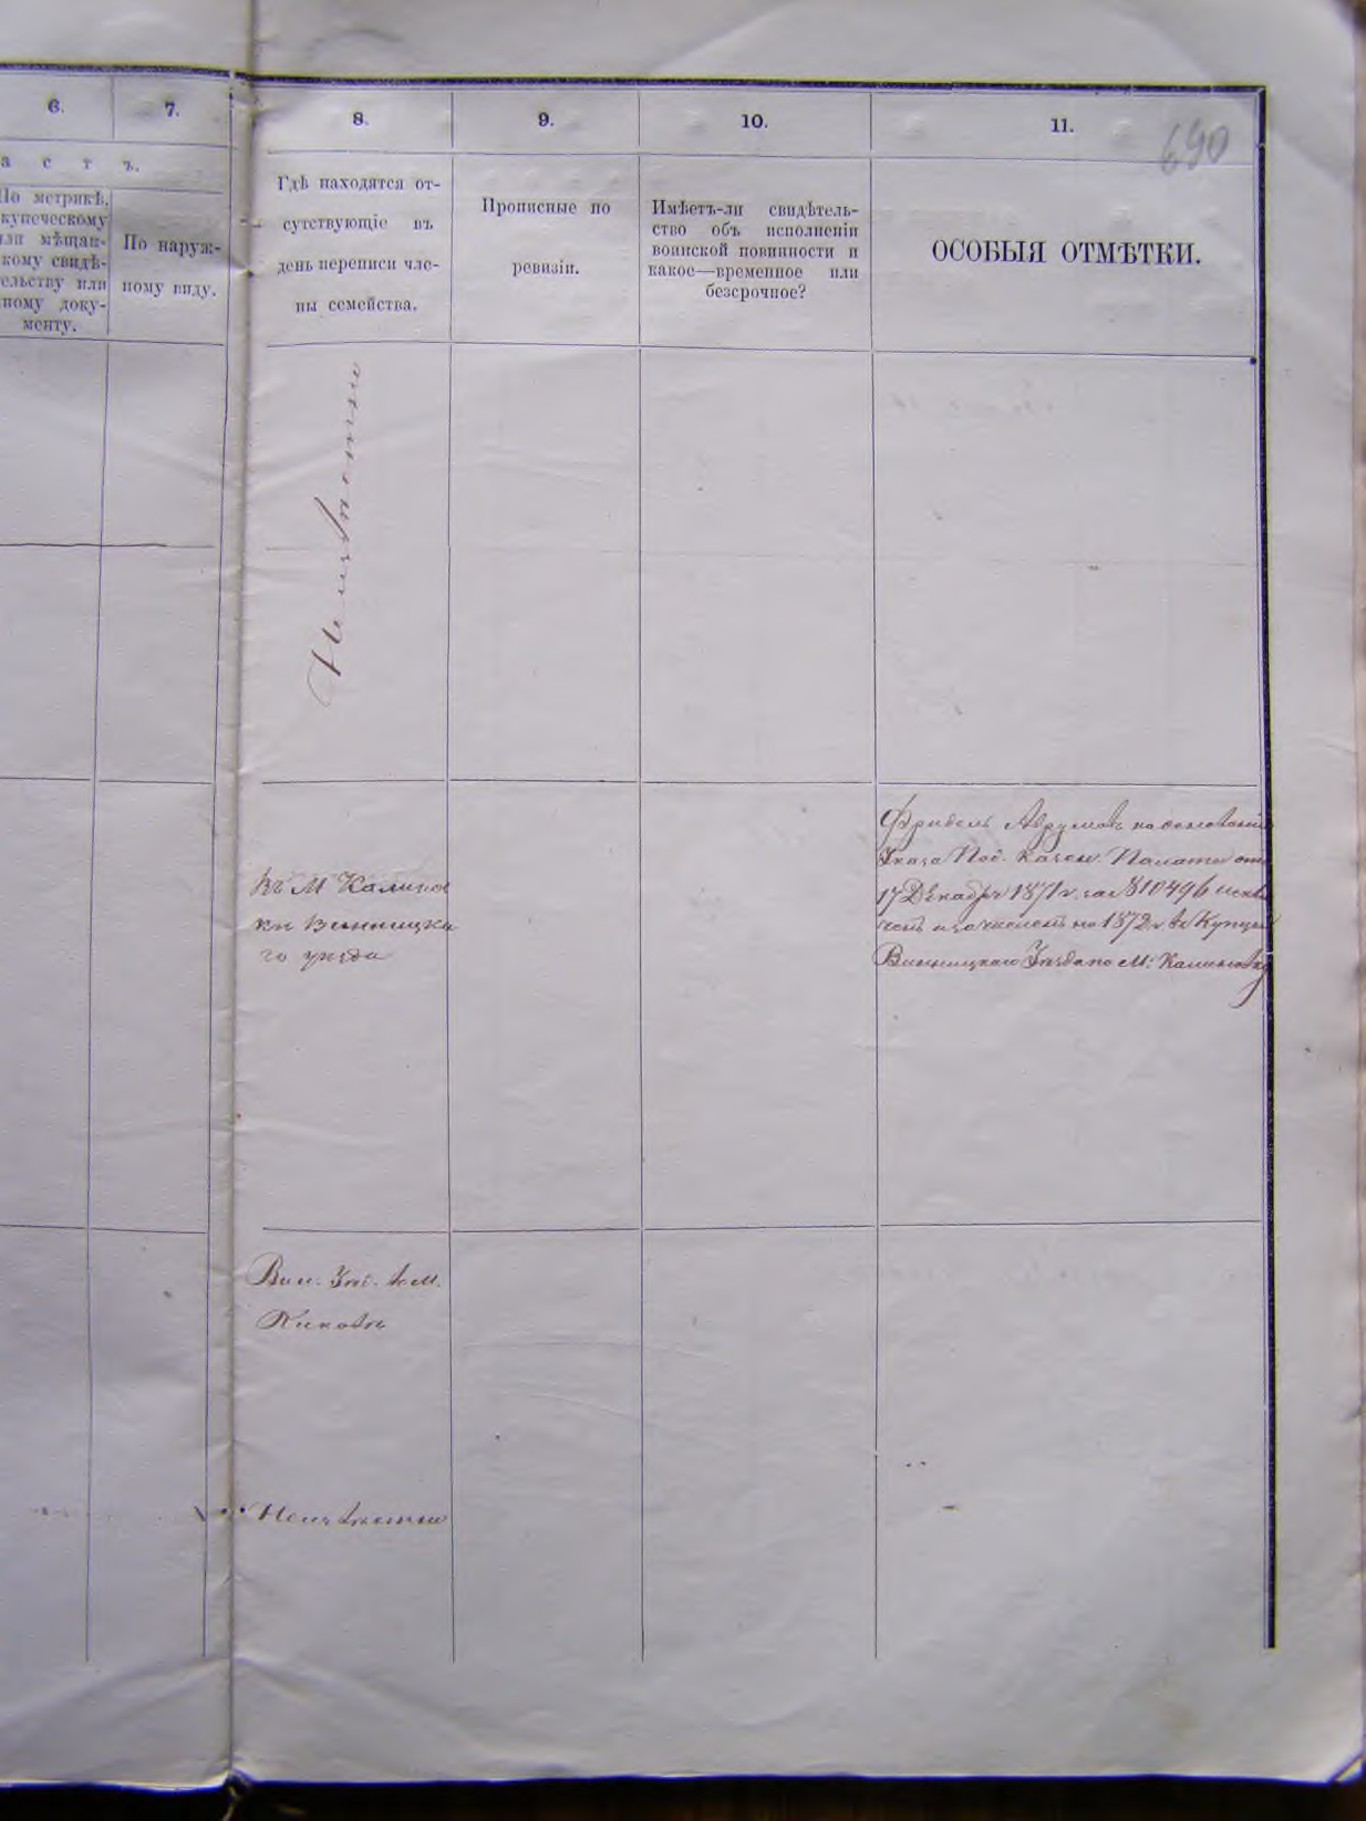 6.
7.
8.
9.
10.
11.
690
а с т ъ.
По метрикѣ,
купеческому
или мѣщан-
скому свидѣ-
тельству или
иному доку-
менту.
По наруж-
ному виду.
Гдѣ находятся от-
сутствующіе въ
день переписи чле-
ны семейства.
Прописные по
ревизіи.
Имѣетъ-ли свидѣтель-
ство объ исполненіи
воинской повинности и
какое—временное или
безсрочное?
ОСОБЫЯ ОТМѢТКИ.
Неизвѣстно
въ М Калинов
ки Винницка
го уѣзда
Фридель Аврумовъ на основаніи
Указа Под. Казен. Палаты отъ
17 Декабря 1871 г. за № 10496 исклю
ченъ и зачисленъ на 1872 г. въ Купцы
Винницкаго Уѣзда по М: Калиновкѣ
Вин. Уѣз. въ М.
Пиковѣ
Неизвѣстно